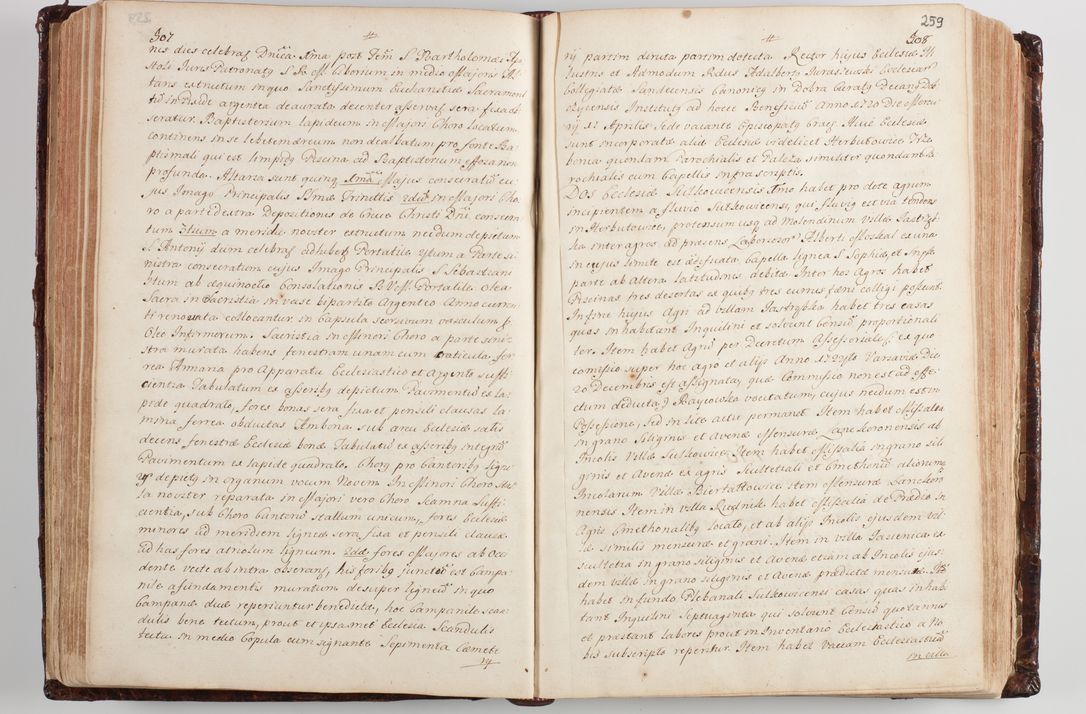 307
nis dies celebras Dnica Ima post Fem S Bartholomæi Apo
stoli Juris Patronatus
taris extructum in quo Sanctissimum Eucharistiæ Sacramen
tum in Pixide argentea deaurata decenter asservas sera fixa ob
seratur. Baptisterium lapideum in Majori Choro locatum
continens in se lebetem æreum non dealbatum pro fonte Ba
ptismali qui est limpidus Piscina ad Baptisterium effossa non
profunda. Altaria sunt quinque Imum Majus consecratum cu
jus Imago Principalis SSmæ Trinitatis 2dum in Majori Cho
ro a parte dextra Depositionis de Cruce Christi Dni consecra
tum 3tium a meridie noviter extructum necdum depictum
S Antonij dum celebras adhibet Portatile 4tum a Parte si
nistra consecratum cujus Imago Principalis S Sebastiani
5tum ab æquinoctio Consolationis Portatile Olea
Sacra in Sacristia in vase bipartito Argenteo Anno curren
ti renovata collocantur in Capsula seorsivum vasculum pro
Oleo Infirmorum. Sacristia in Minori Choro a parte sini
stra murata habens fenestram unam cum craticula fer
rea Armaria pro Apparatu Ecclesiastico et Argento suffi
cientia Tabulatum ex asseribus depictum Pavimentum ex la
pide quadrato, fores bonas sera fixa et pensili clausas la
mina ferrea obductas Ambona sub arcu Ecclesiæ satis
decens, fenestræ Ecclesiæ bonæ Tabulatum ex asseribus integrum
Pavimentum ex lapide quadrato. Chorus pro Cantoribus ligne
us depictus in organum vocum Novem In Minori Choro stal
la noviter reparata in Majori vero Choro Scamna Suffi
cientia, sub Choro Cantorum stallum unicum, fores Ecclesiæ
minores ad meridiem ligneæ sera fixa et pensili clausæ
ad has fores atriolum ligneum. 2dæ fores Majores ab Occi
dente vecte ab intra obserans, his foribus junctum est Campa
nile a fundamentis muratum desuper ligneum in quo
Campanæ duæ reperiuntur benedictæ, hoc Campanile scan
dulis bene tectum, prout et ipsamet Ecclesia Scandulis
tecta in medio Copula cum signante Sepimenta Cæmete
rij
259
308
rij partim diruta partim detecta Rector hujus Ecclesiæ Il
lustris et Admodum Rdus Adalbertus Ecclesiar
Collegiatæ Sandecensis Canonicus in Dobra Curatus Decanus Dob
czycensis Institutus ad hocce Beneficium Anno 1720 Die Mensis
11 Aprilis Sede vacante Episcopatus Huic Ecclesiæ
sunt incorporatæ aliæ Ecclesiæ videlicet Herbutovicen Trze
bunia quondam Parochialis et Palcza similiter quondam Pa
rochialis cum Capellis infrascriptis.
DOS Ecclesiæ Sułkovicensis Imo habet pro dote agrum
incipientem a fluvio Sułkowicensi, qui fluvius est via tendens
in Herbutowice, protensum usque ad Molendinum villæ Jastrzęb
ska inter agros ad præsens Laboriosor Alberti Moskal ex una
in cujus limite est ædificata Capella lignea S Sophiæ, et
parte ab altera latitudinis debitæ Inter hos Agros habet
Piscinas tres desertas ex quibus tres currus fæni colligi possunt
In fine hujus Agri ad villam Jastrząbka habet tres casas
quas inhabitant Inquilini et solvunt Censum proportionali
ter. Item habet Agrum per Decretum Assessoriale, ex quo
comissio super hoc agro et alijs Anno 1722do Varsaviæ Die
20 Decembris est assignata, quæ Commissio non est ad effe
ctum deducta) Krayowska vocitatum, cujus necdum est in
Possessione, sed in lite actu permanet Item habet Missalia
in grano Siliginis et Avenæ Mensuræ Lanckoronensis ab
Incolis Villæ Sułkowice Item habet Missalia in grano sili
ginis et Avenæ ex agris Scultetiali et Cmethonum aliorumque
Incolarum Villæ Biertałtowice Item Mensuræ Lanckoro
nensis Item in villa Rudnik habet Missalia de Prædio in
Agris Cmethonalibus locato, et ab alijs Incolis ejusdem vil
læ similis mensuræ et grani. Item in villa Jasienica ex
scultetia in grano siliginis et Avenæ etiam ab Incolis ejus
dem villæ in grano siliginis et Avenæ prædictæ mensuræ Item
habet in fundo Plebanali Sułkowicensi casas quas inhabi
tant Inquilini Septuaginta qui solvunt Censum quotannis
et præstant labores prout in Inventario Ecclesiastico a No
bis subscripto reperitur. Item habet Vaccam Ecclesiasticam
in villa